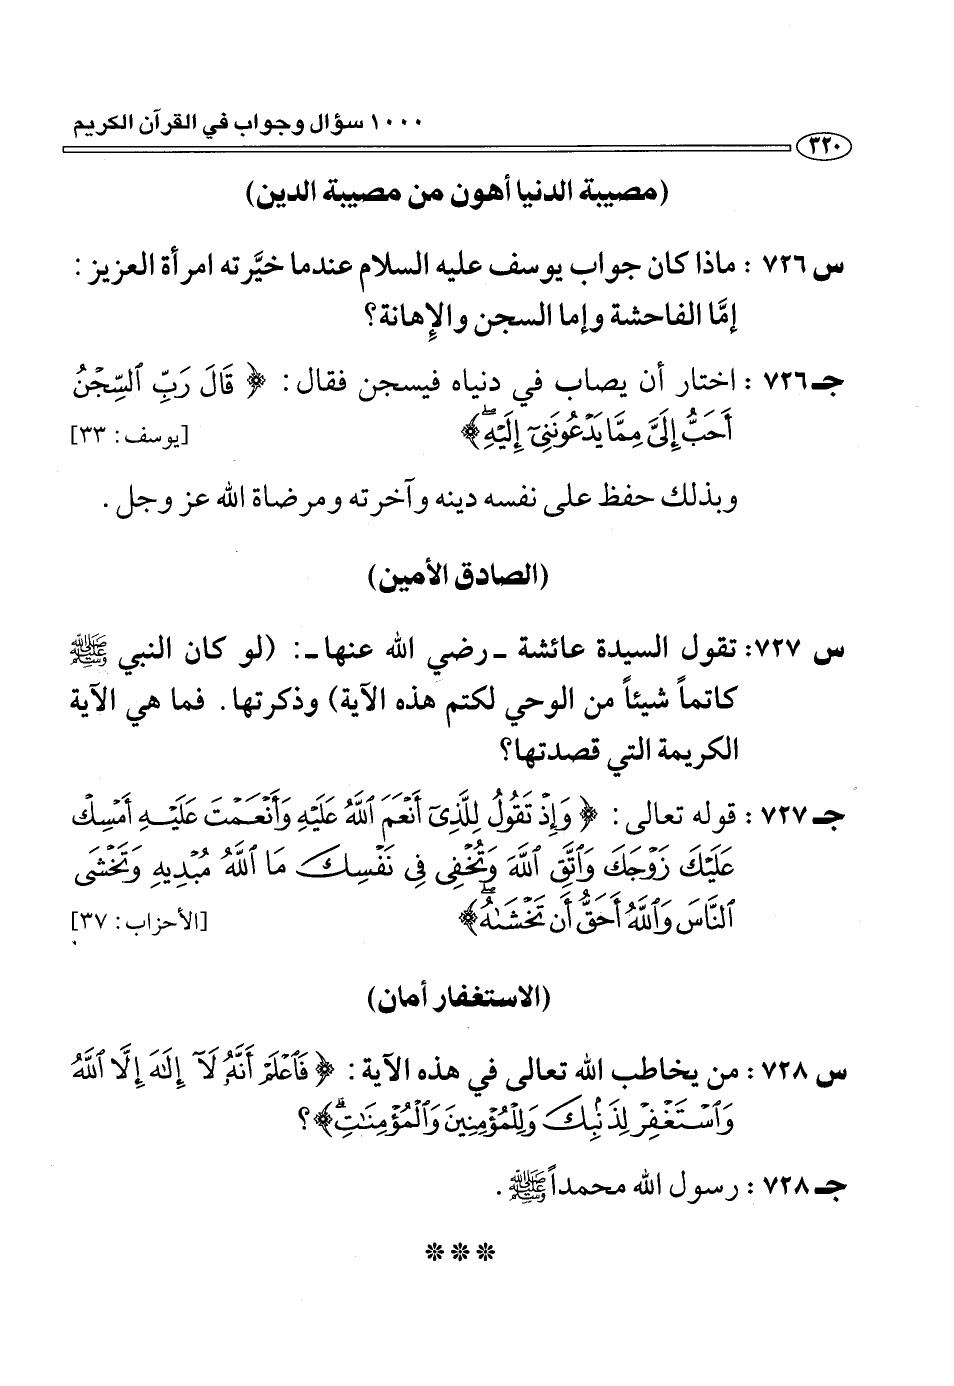 ١٠٠٠ سؤال وجواب في القرآن الكريم
٣٢٠
(مصيبة الدنيا أهون من مصيبة الدين)
س ٧٢٦ : ماذا كان جواب يوسف عليه السلام عندما خيَّرته امرأة العزيز :
إمَّا الفاحشة وإما السجن والإهانة؟
جـ ٧٢٦ : اختار أن يصاب في دنياه فيسجن فقال : ﴿ قَالَ رَبِّ ٱلسِّجْنُ
أَحَبُّ إِلَىَّ مِمَّا يَدْعُونَنِىٓ إِلَيْهِ ۖ﴾ [يوسف : ٣٣]
وبذلك حفظ على نفسه دينه وآخرته ومرضاة الله عز وجل .
(الصادق الأمين)
س ٧٢٧: تقول السيدة عائشة ـ رضي الله عنها ـ: (لو كان النبي ﷺ
كاتماً شيئاً من الوحي لكتم هذه الآية) وذكرتها. فما هي الآية
الكريمة التي قصدتها؟
جـ ٧٢٧ : قوله تعالى : ﴿ وَإِذْ تَقُولُ لِلَّذِىٓ أَنْعَمَ ٱللَّهُ عَلَيْهِ وَأَنْعَمْتَ عَلَيْهِ أَمْسِكْ
عَلَيْكَ زَوْجَكَ وَٱتَّقِ ٱللَّهَ وَتُخْفِى فِى نَفْسِكَ مَا ٱللَّهُ مُبْدِيهِ وَتَخْشَى
ٱلنَّاسَ وَٱللَّهُ أَحَقُّ أَن تَخْشَىٰهُ ۖ﴾ [الأحزاب : ٣٧]
(الاستغفار أمان)
س ٧٢٨ : من يخاطب الله تعالى في هذه الآية : ﴿ فَٱعْلَمْ أَنَّهُۥ لَآ إِلَٰهَ إِلَّا ٱللَّهُ
وَٱسْتَغْفِرْ لِذَنۢبِكَ وَلِلْمُؤْمِنِينَ وَٱلْمُؤْمِنَٰتِ ۗ﴾؟
جـ ٧٢٨ : رسول الله محمداً ﷺ .